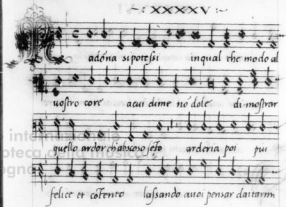 XXXXV
adōna si potessi in qual che modo al
uostro core a cui di me nō dole di mostrar
quello ardor arderia poi pui
felice et cōtento lassando a uoi pensar